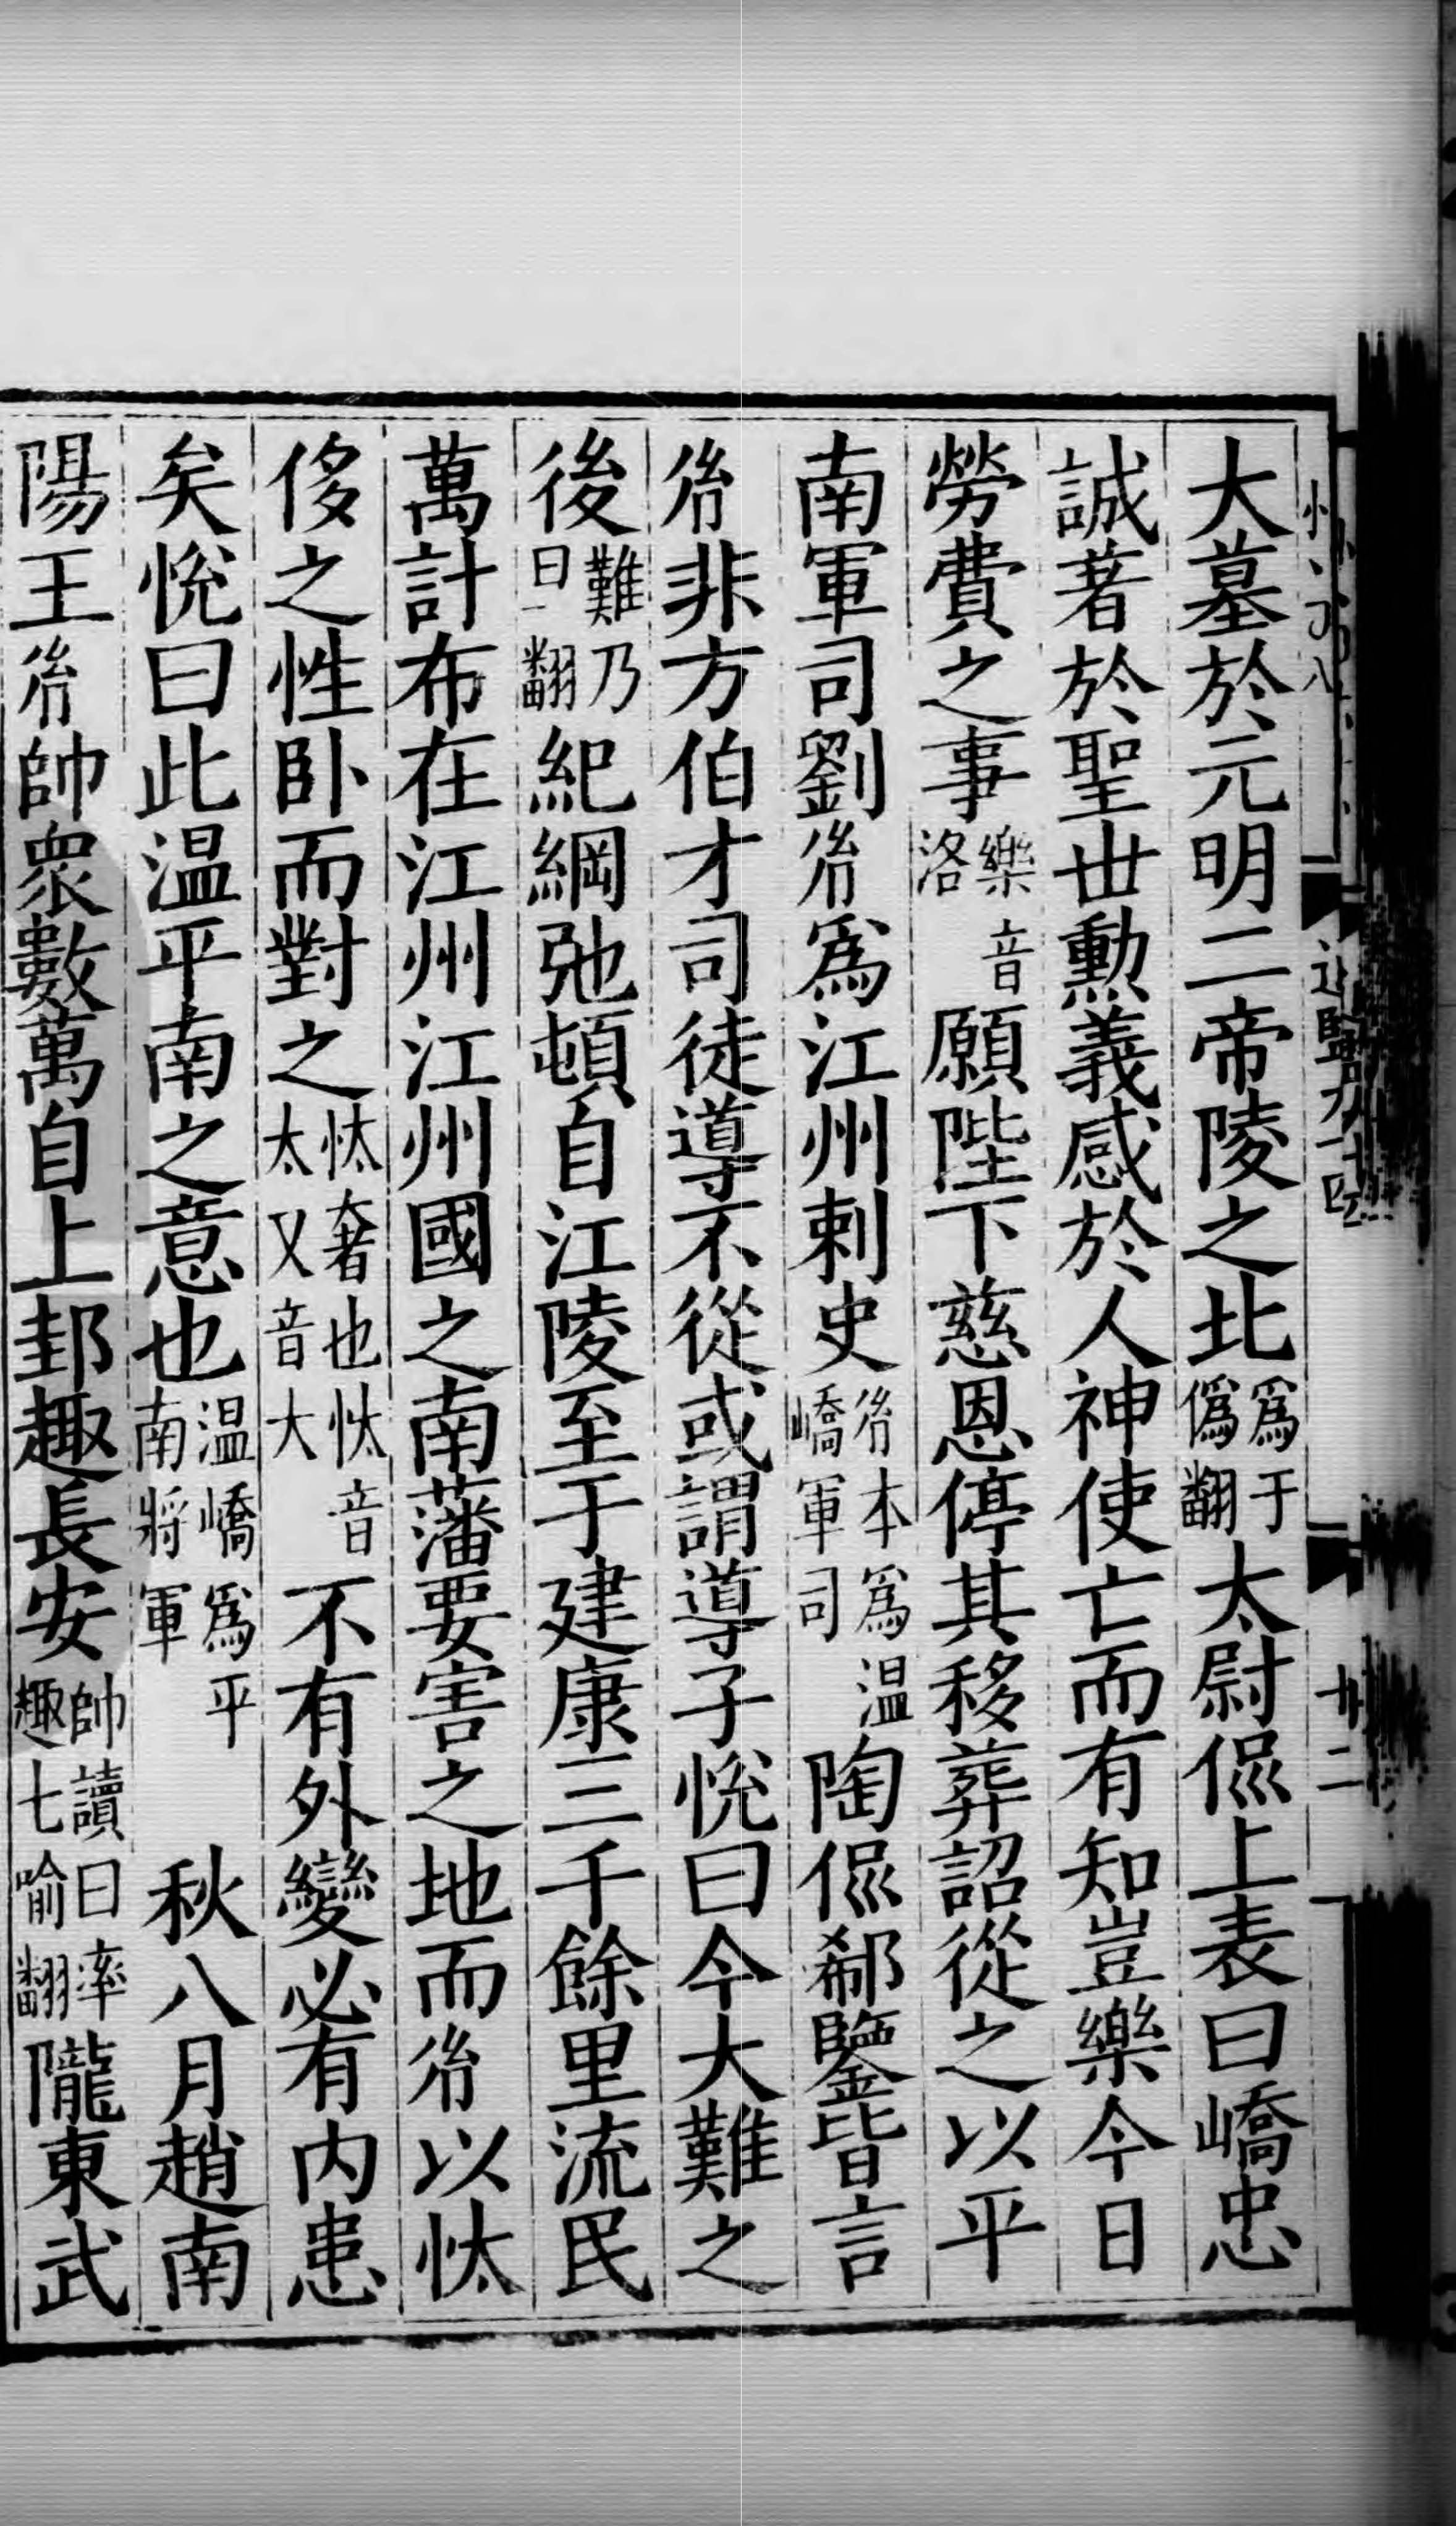 大墓於元明二帝陵之北爲于僞翻太尉侃上表曰嶠忠
誠著於聖世勲義感於人神使亡而有知豈樂今日
勞費之事樂音洛願陛下慈恩停其移葬詔從之以平
南軍司劉㣧爲江州刺史㣧本爲温嶠軍司陶侃郗鑒皆言
㣧非方伯才司徒導不從或謂導子恱曰今大難之
後難乃旦翻紀綱弛頓自江陵至于建康三千餘里流民
萬計布在江州江州國之南藩要害之地而㣧以忲
侈之性卧而對之忲奢也忲音太又音大不有外變必有内患
矣恱曰此温平南之意也温嶠爲平南將軍秋八月趙南
陽王㣧帥衆數萬自上邽趣長安帥讀曰率趣七喻翻隴東武